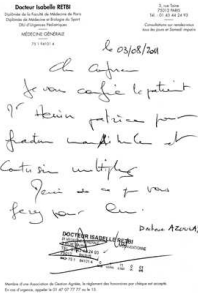 Docteur Isabelle RETBI
Diplômée de la Faculté de Médecine de Paris
Diplômée de Médecine et Biologie du Sport
DIU d'Urgences Pédiatriques
MÉDECINE GÉNÉRALE
75012 PARIS
Tél : 01 43 44 24 93
Consultations sur rendez-vous
tous les jours et Samedi matin
le 03/08/2011
Cher Confrère
Je vous confie le patient
Mr Henin patricia pour
fracture mandibule et
Contusion multiples
Merci de ce que vous
ferez pour lui.
Docteur
DOCTEUR ISABELLE RETBI
Membre d'une Association de Gestion Agréée, le règlement des honoraires par chèque est accepté.
En cas d'urgence, appeler le 01 47 07 77 77 ou le 15.